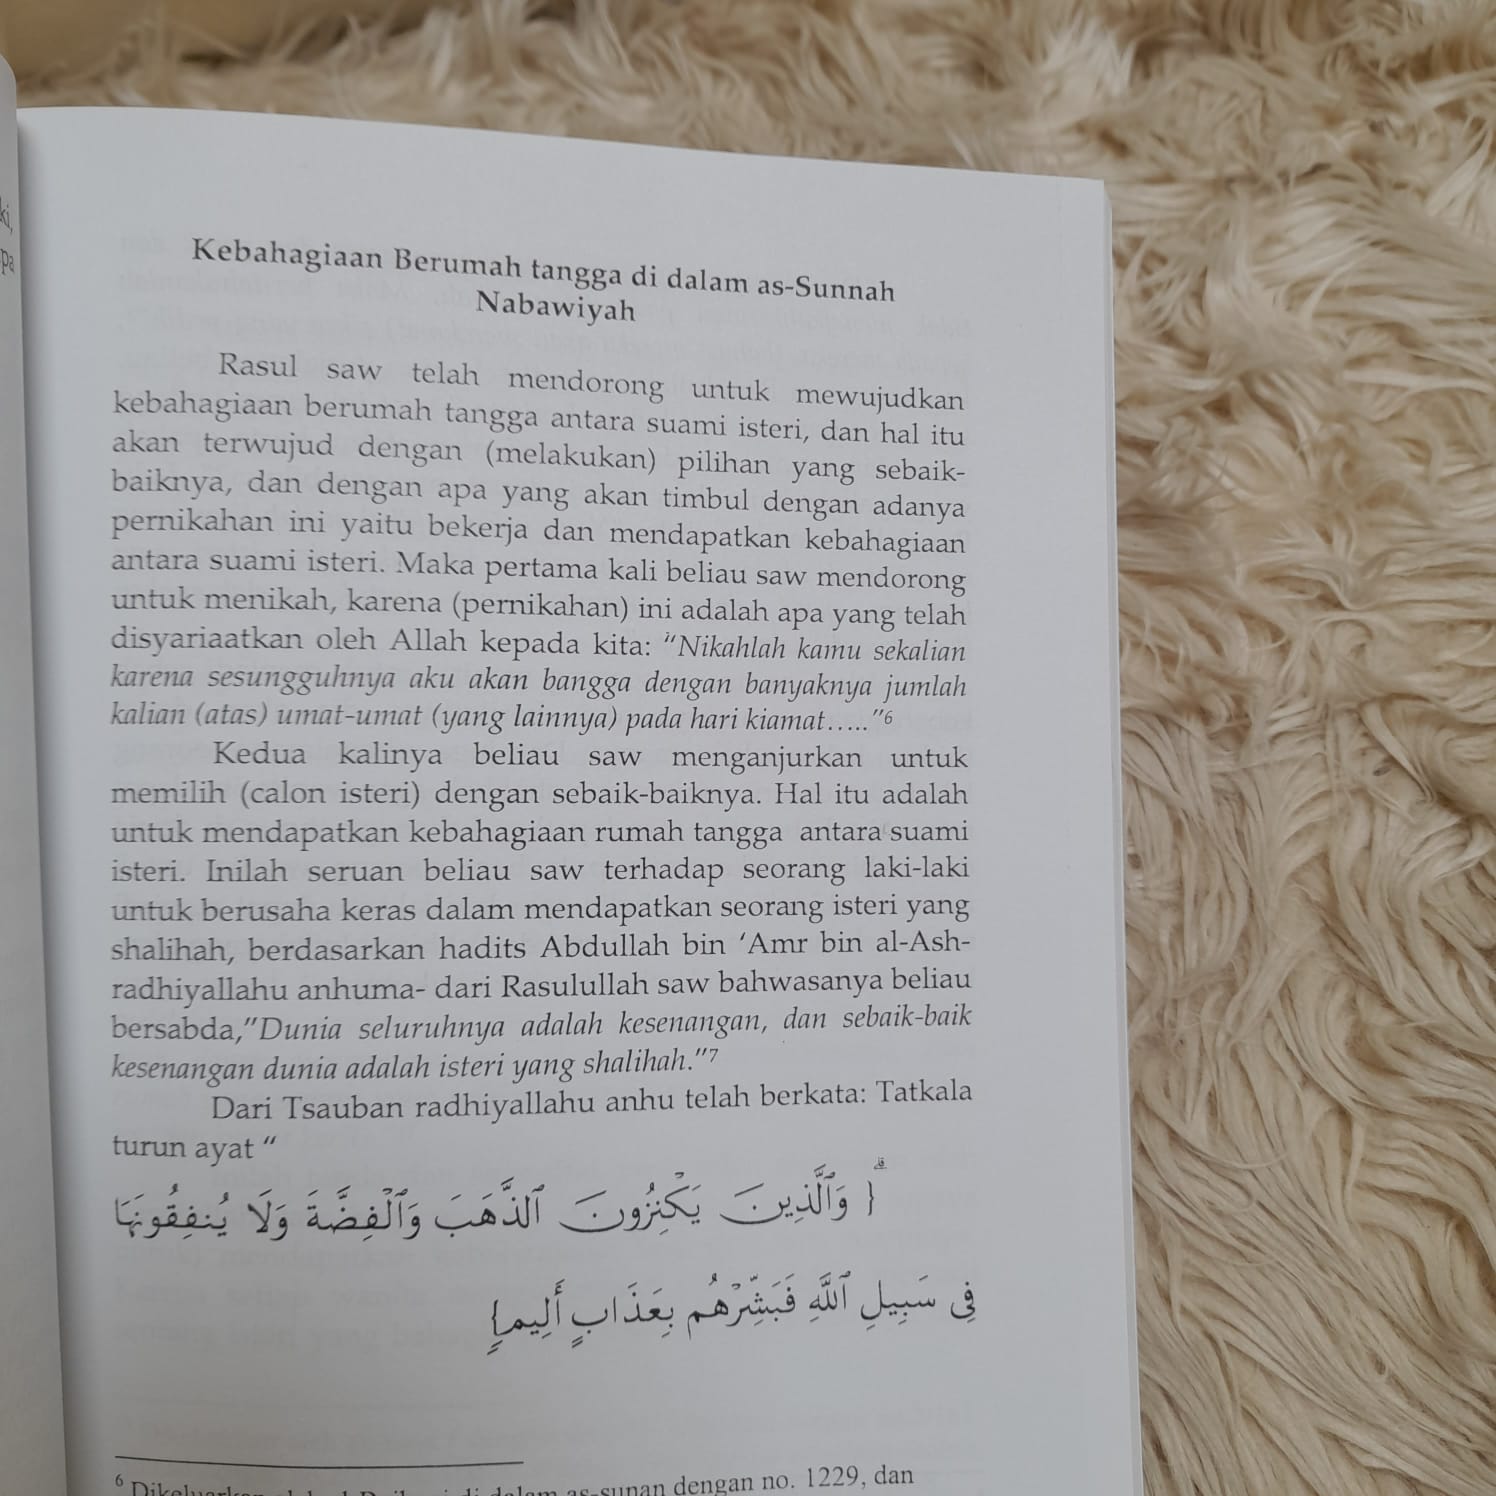 ki,
pa
Kebahagiaan Berumah tangga di dalam as-Sunnah
Nabawiyah
Rasul saw telah mendorong untuk mewujudkan
kebahagiaan berumah tangga antara suami isteri, dan hal itu
akan terwujud dengan (melakukan) pilihan yang sebaik-
baiknya, dan dengan apa yang akan timbul dengan adanya
pernikahan ini yaitu bekerja dan mendapatkan kebahagiaan
antara suami isteri. Maka pertama kali beliau saw mendorong
untuk menikah, karena (pernikahan) ini adalah apa yang telah
disyariaatkan oleh Allah kepada kita: "Nikahlah kamu sekalian
karena sesungguhnya aku akan bangga dengan banyaknya jumlah
kalian (atas) umat-umat (yang lainnya) pada hari kiamat....."⁶
Kedua kalinya beliau saw menganjurkan untuk
memilih (calon isteri) dengan sebaik-baiknya. Hal itu adalah
untuk mendapatkan kebahagiaan rumah tangga antara suami
isteri. Inilah seruan beliau saw terhadap seorang laki-laki
untuk berusaha keras dalam mendapatkan seorang isteri yang
shalihah, berdasarkan hadits Abdullah bin 'Amr bin al-Ash-
radhiyallahu anhuma- dari Rasulullah saw bahwasanya beliau
bersabda,"Dunia seluruhnya adalah kesenangan, dan sebaik-baik
kesenangan dunia adalah isteri yang shalihah."⁷
Dari Tsauban radhiyallahu anhu telah berkata: Tatkala
turun ayat "
{ وَٱلَّذِينَ يَكْنِزُونَ ٱلذَّهَبَ وَٱلْفِضَّةَ وَلَا يُنفِقُونَهَا
فِي سَبِيلِ ٱللَّهِ فَبَشِّرْهُم بِعَذَابٍ أَلِيمٍ}
⁶ dalam as-sunan dengan no. 1229, dan